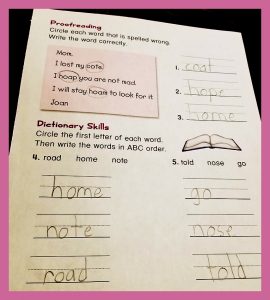 Proofreading
Circle each word that is spelled wrong.
Write the word correctly.
Mom,
I lost my cote.
I hoap you are not mad.
I will stay hoam to look for it.
Joan
1. coat
2. hope
3. home
Dictionary Skills
Circle the first letter of each word.
Then write the words in ABC order.
4. road home note
home
note
road
5. told nose go
go
nose
told